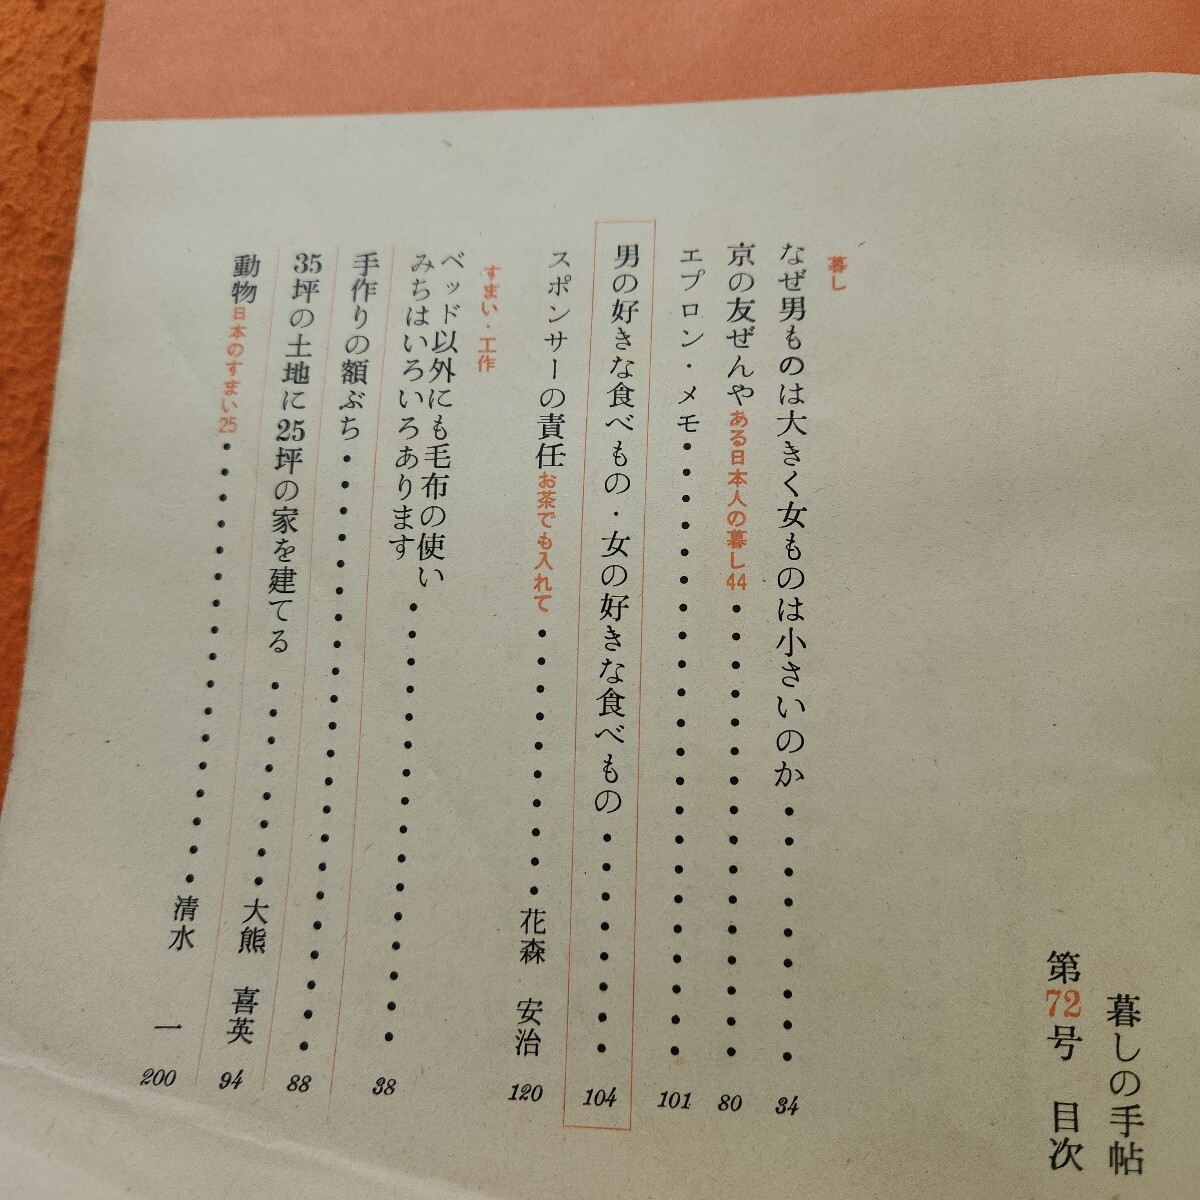 暮しの手帖
第72号 目次
暮し
なぜ男ものは大きく女ものは小さいのか・・・・・・・・・34
京の友ぜんや ある日本人の暮し44・・・・・・・・・・・・・・・・80
エプロン・メモ・・・・・・・・・・・・・・・・・・・・・・101
男の好きな食べもの・女の好きな食べもの・・・・・・・・104
スポンサーの責任 お茶でも入れて・・・・・・・・・・花森 安治 120
すまい・工作
ベッド以外にも毛布の使い
みちはいろいろあります・・・・・・・・・・・・・・・・38
手作りの額ぶち・・・・・・・・・・・・・・・・・・・・・・88
35坪の土地に25坪の家を建てる・・・・・・・・大熊 喜英 94
動物 日本のすまい25・・・・・・・・・・・・・・・・・清水 一 200